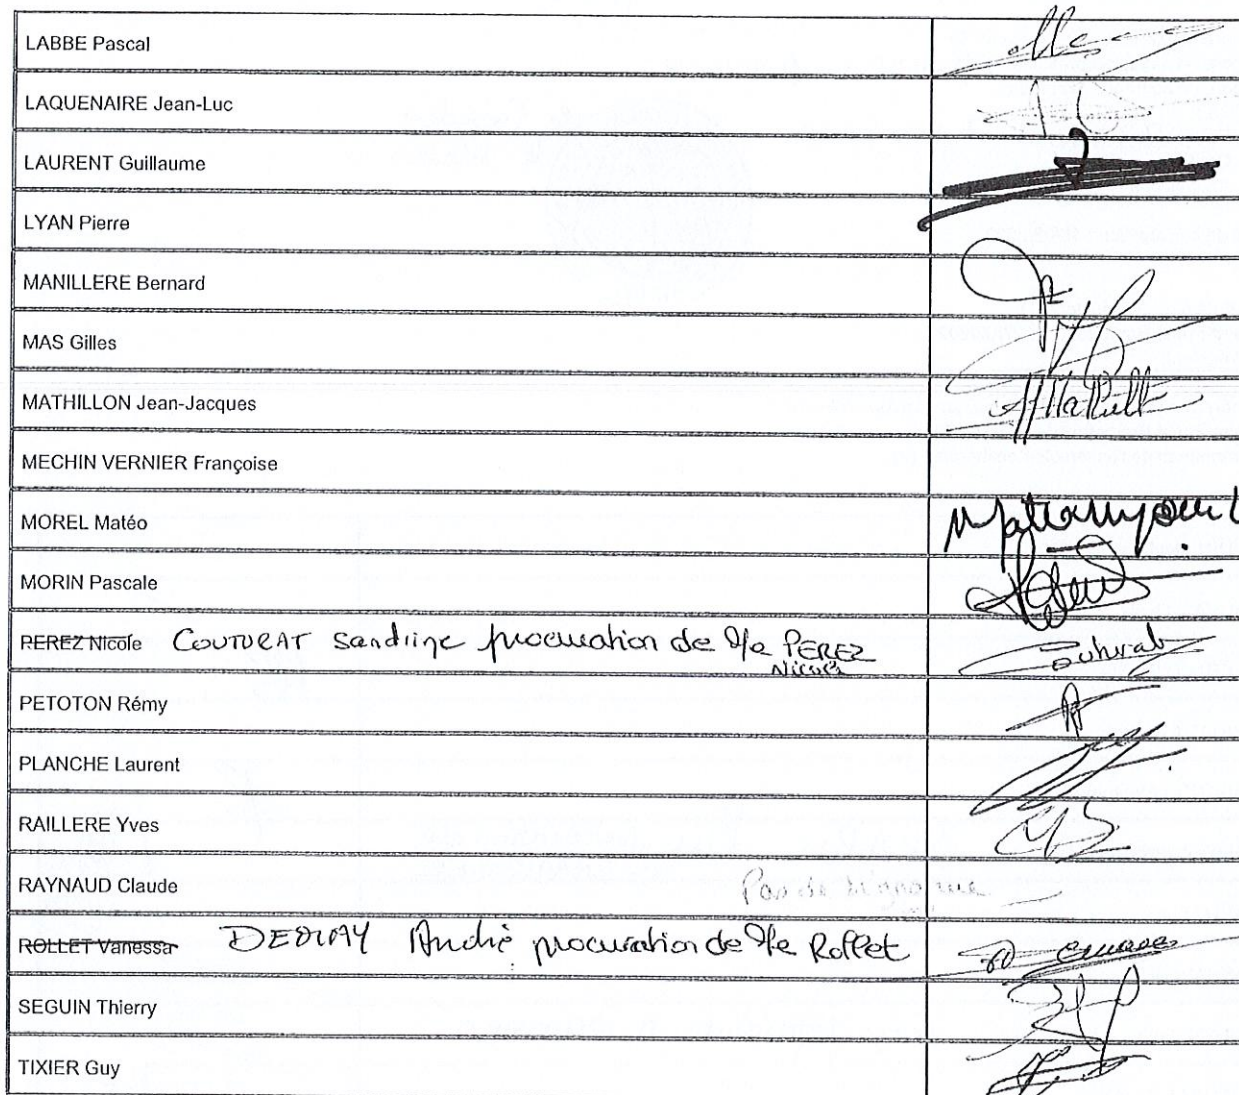 LABBE Pascal
LAQUENAIRE Jean-Luc
LAURENT Guillaume
LYAN Pierre
MANILLERE Bernard
MAS Gilles
MATHILLON Jean-Jacques
MECHIN VERNIER Françoise
MOREL Matéo
MORIN Pascale
PEREZ Nicole COUTURAT Sandrine procuration de Me PEREZ
Nicole
PETOTON Rémy
PLANCHE Laurent
RAILLERE Yves
RAYNAUD Claude Pas de
ROLLET Vanessa André procuration de Me Rollet
SEGUIN Thierry
TIXIER Guy